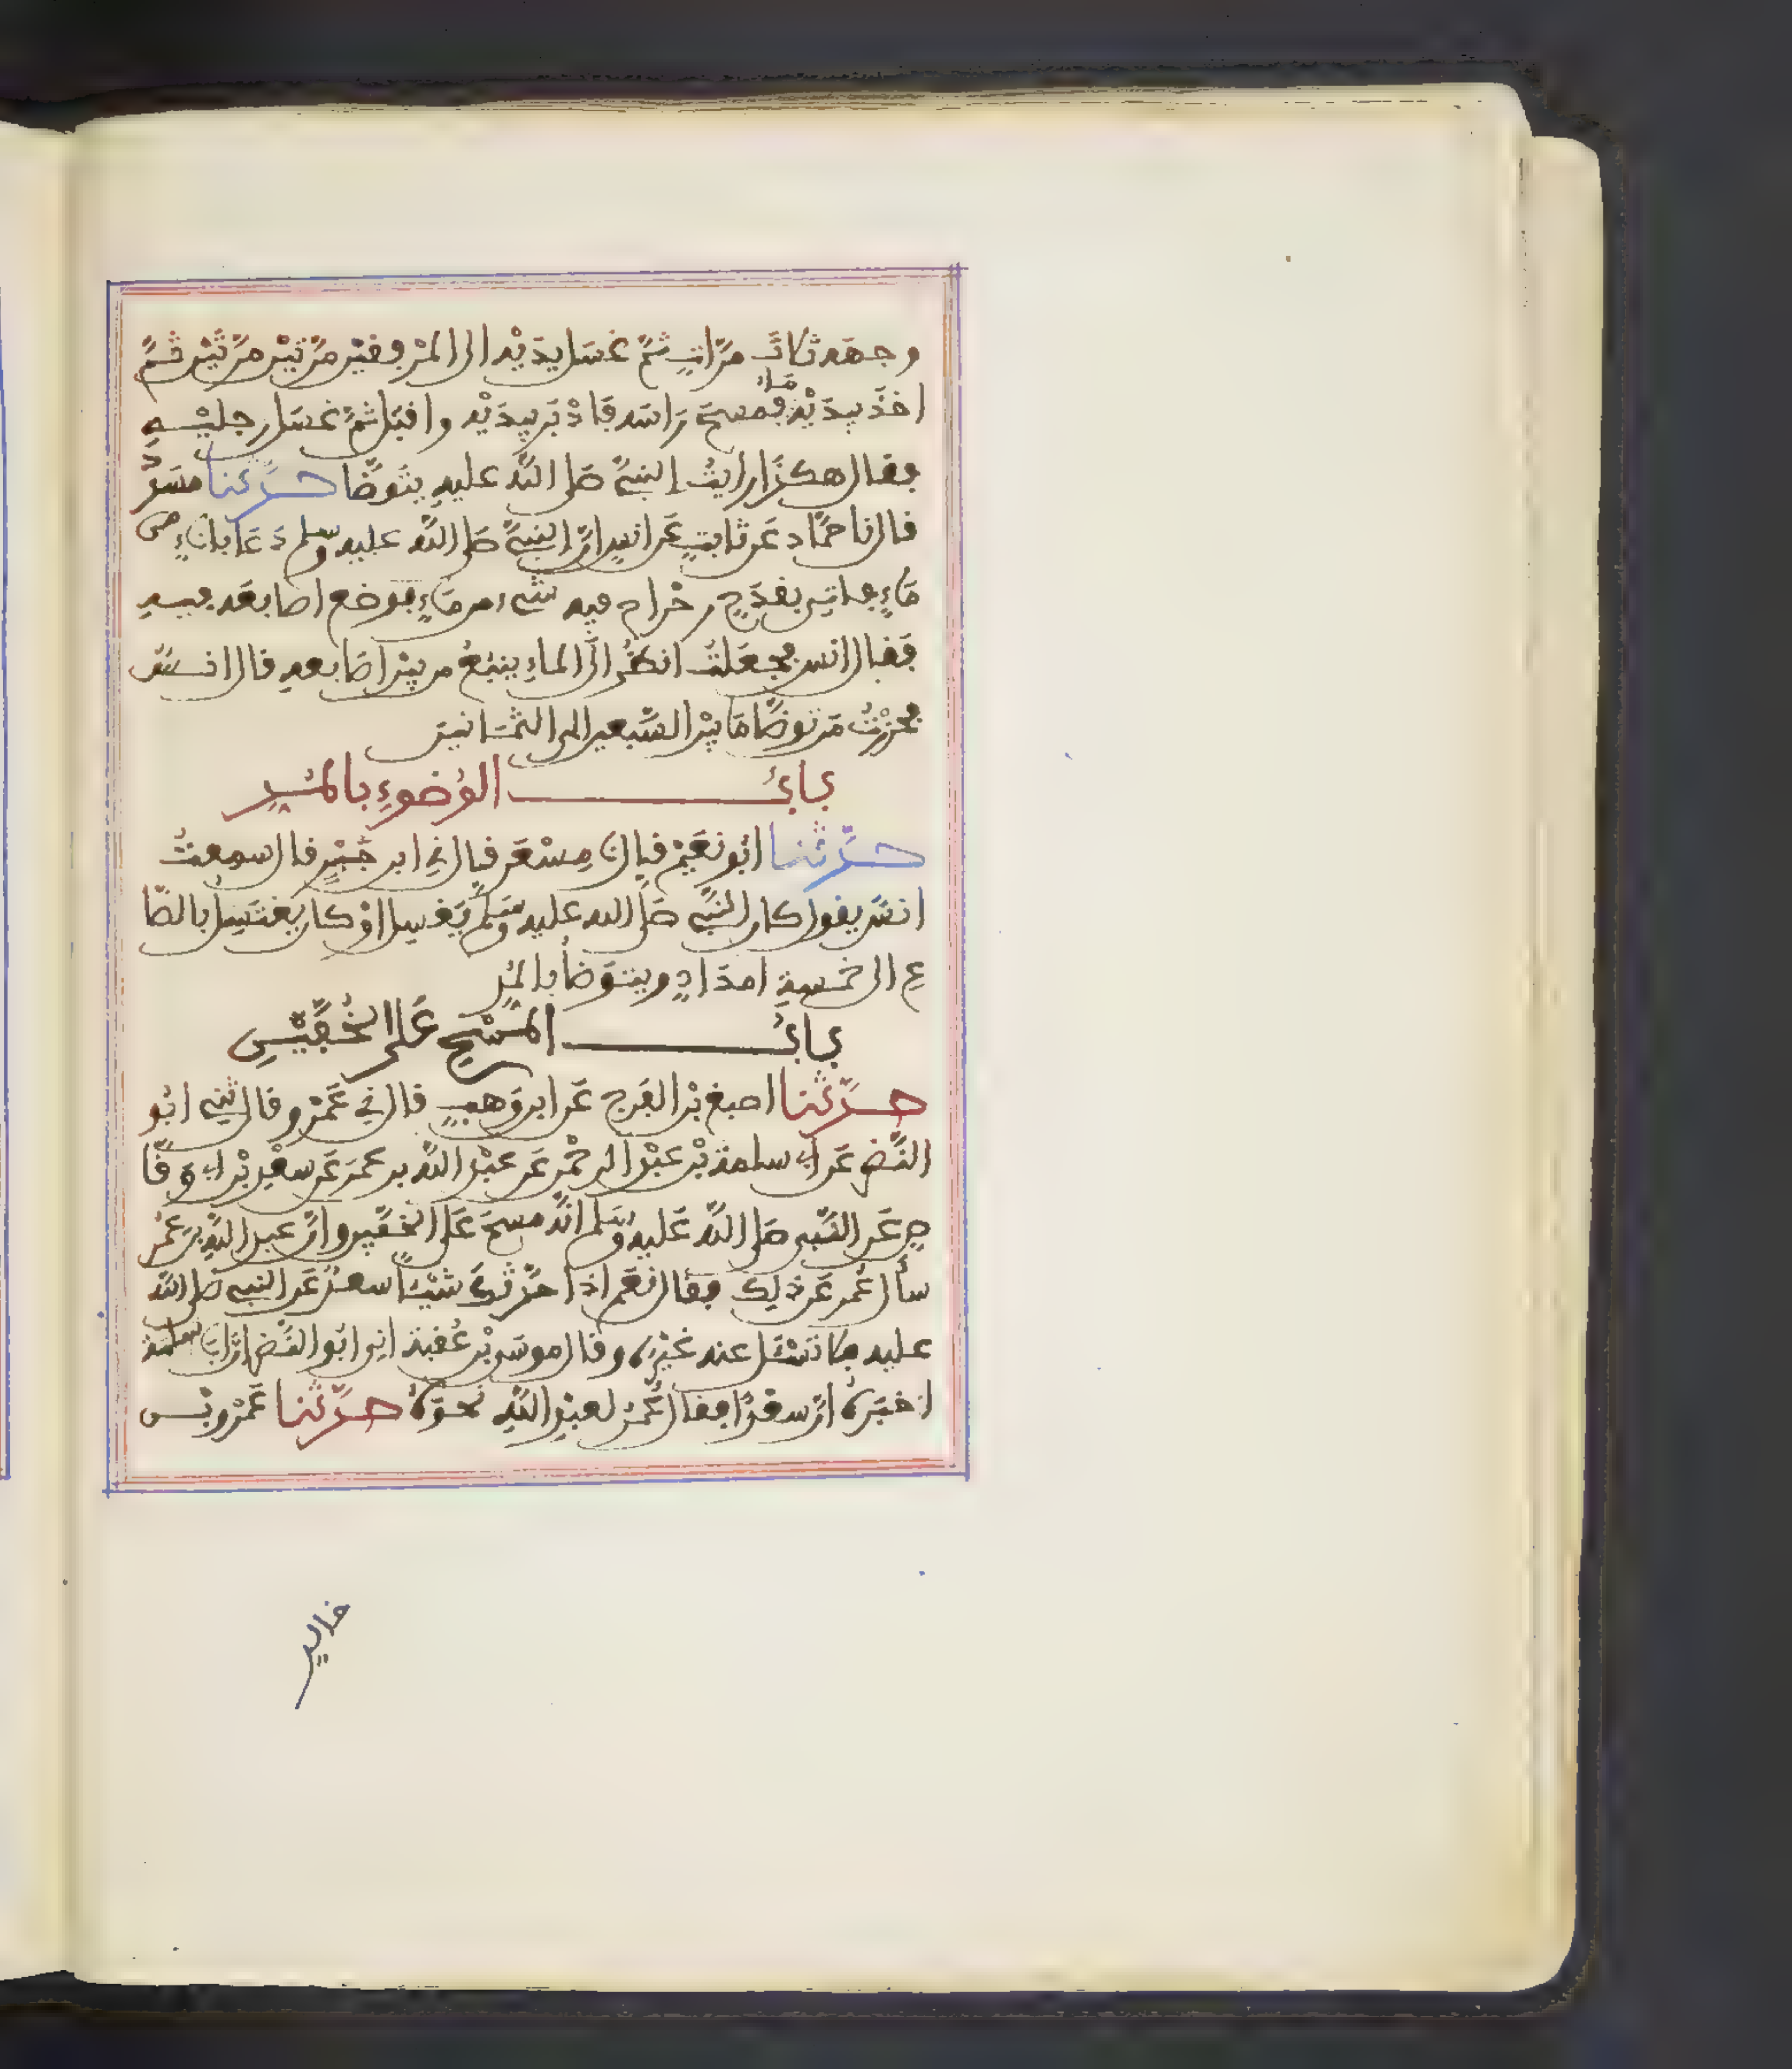 وجهه ثلاثَ مرَّاتٍ ثمَّ غسَل يدَيْه الى المرْفقيْن مرّتيْن مرّتيْن ثمَّ
اخذَ بيدَيْه مَاءً فمسحَ رَاسَه فَادْبَر بيدَيْه واقبَل ثمَّ غسَل رجليْه
فقال هكذا رايتُ النبيَّ صَلى اللَّه عليهِ يتوَضَّا حدَّثنا مسَدَّدٌ
قال نا حمَّاد عَن ثابتٍ عَن انسٍ انَّ النبيَّ صَلى اللَّه عليه وسلم دَعَا باناءٍ من
مَاءٍ فاتي بقدَحٍ رحْراحٍ فيه شيء من مَاءٍ فوضع اصابعَه فيهِ
فَقال انس فجعَلتُ انظُر الَى الماءِ ينبُع من بيْن اصَابعهِ قال انسٌ
فحزرْتُ مَن توضَّا مَا بيْن السَّبعين الى الثمَانين
بابُ الوُضوءِ بالمُدِّ
حدَّثنا ابُو نعَيْم قال نا مِسْعَر قال ني ابن جَبْرٍ قال سمعتُ
انسًا يقول كان النبيّ صَلى الله عليه وسَلّم يَغسِل اوْ كان يَغتسِل بالصَّا
عِ الى خمسةِ امدَادٍ ويتوَضأ بالمُدِّ
بابُ المَسْحِ عَلى الخُفَّيْنِ
حدَّثنا اصبغ بْن الفَرج عَن ابن وَهبٍ قال ني عَمْرو قال ثني ابُو
النَّضر عَن ابي سلمة بْن عبْد الرحْمن عَن عبْد اللَّه بن عُمَر عَن سعْدِ بْن ابي وَقَّا
صٍ عَن النَّبي صَلى اللَّه عَليه وسَلم انَّه مسحَ عَلى الخفَّين وانَّ عبد اللَّه بن عُمَر
سأل عُمر عَن ذلِك فقال نعَم اذا حدَّثكَ شيْئًا سعدٌ عَن النبي صَلى اللَّه
عليه فلا تسْئل عنه غيْرَه وقال موسَى بْن عُقبة اني ابُو النَّضر انَّ ابَا سلمة
اخبَرَه انَّ سعْدًا فقال عُمَرُ لعبْدِ اللَّه نحوَهُ حدَّثنا عَمْرو بْن
خالدٍ